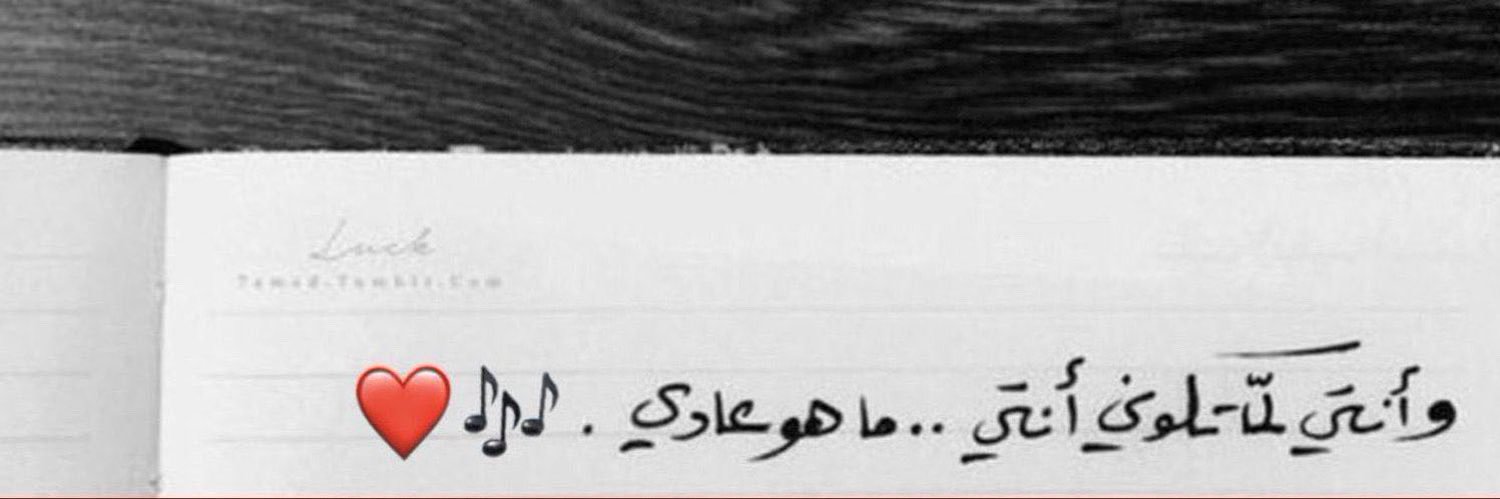 Luck
7amad.Tumblr.Com
وأنتي لمّا تكوني أنتي .. ما هو عادي . 🎶❤️